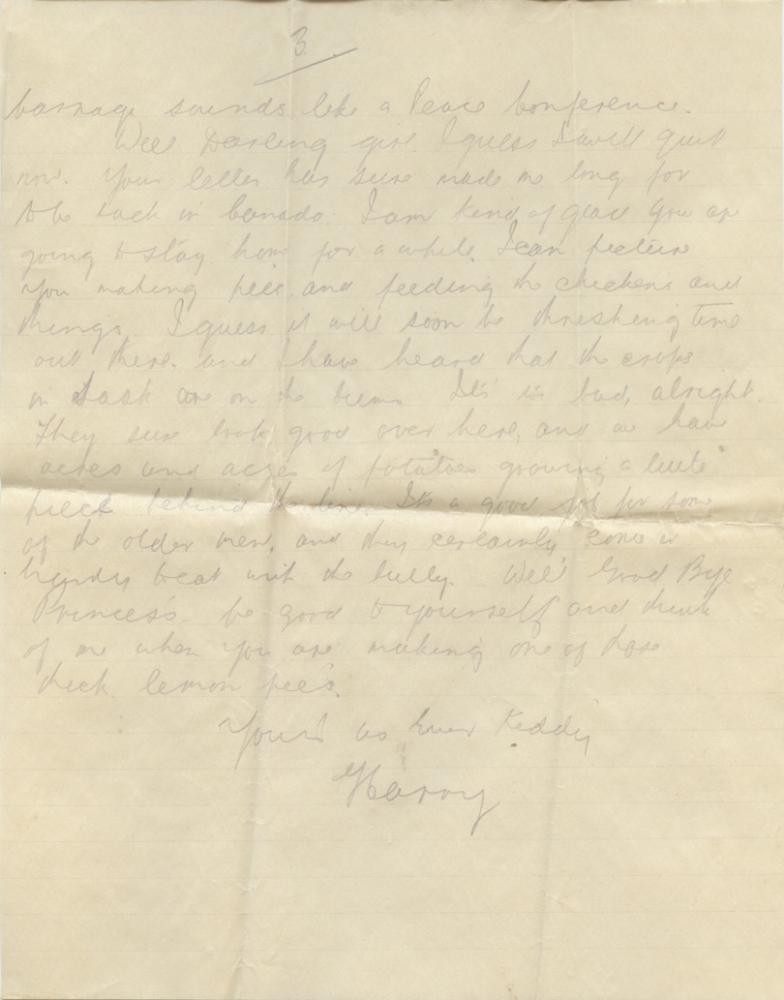 3.
barrage sounds like a Peace Conference.
Well Darling girl I guess I will quit
now. Your letter has sure made me long for
to be back in Canada. I am kind of glad you are
going to stay home for a while. I can picture
you making pies, and feeding the chickens and
things. I guess it will soon be threshing time
out there. and I have heard that the crops
in Sask are on the bum. It's is bad, alright.
They sure look good over here, and we have
acres and acres of potatoes growing a little
piece behind the line. It's a good job for some
of the older men, and they certainly come in
handy with the bully. Well Good Bye
Princess. be good to yourself and think
of me when you are making one of those
thick lemon pies.
Yours as Ever Kiddy
Harry